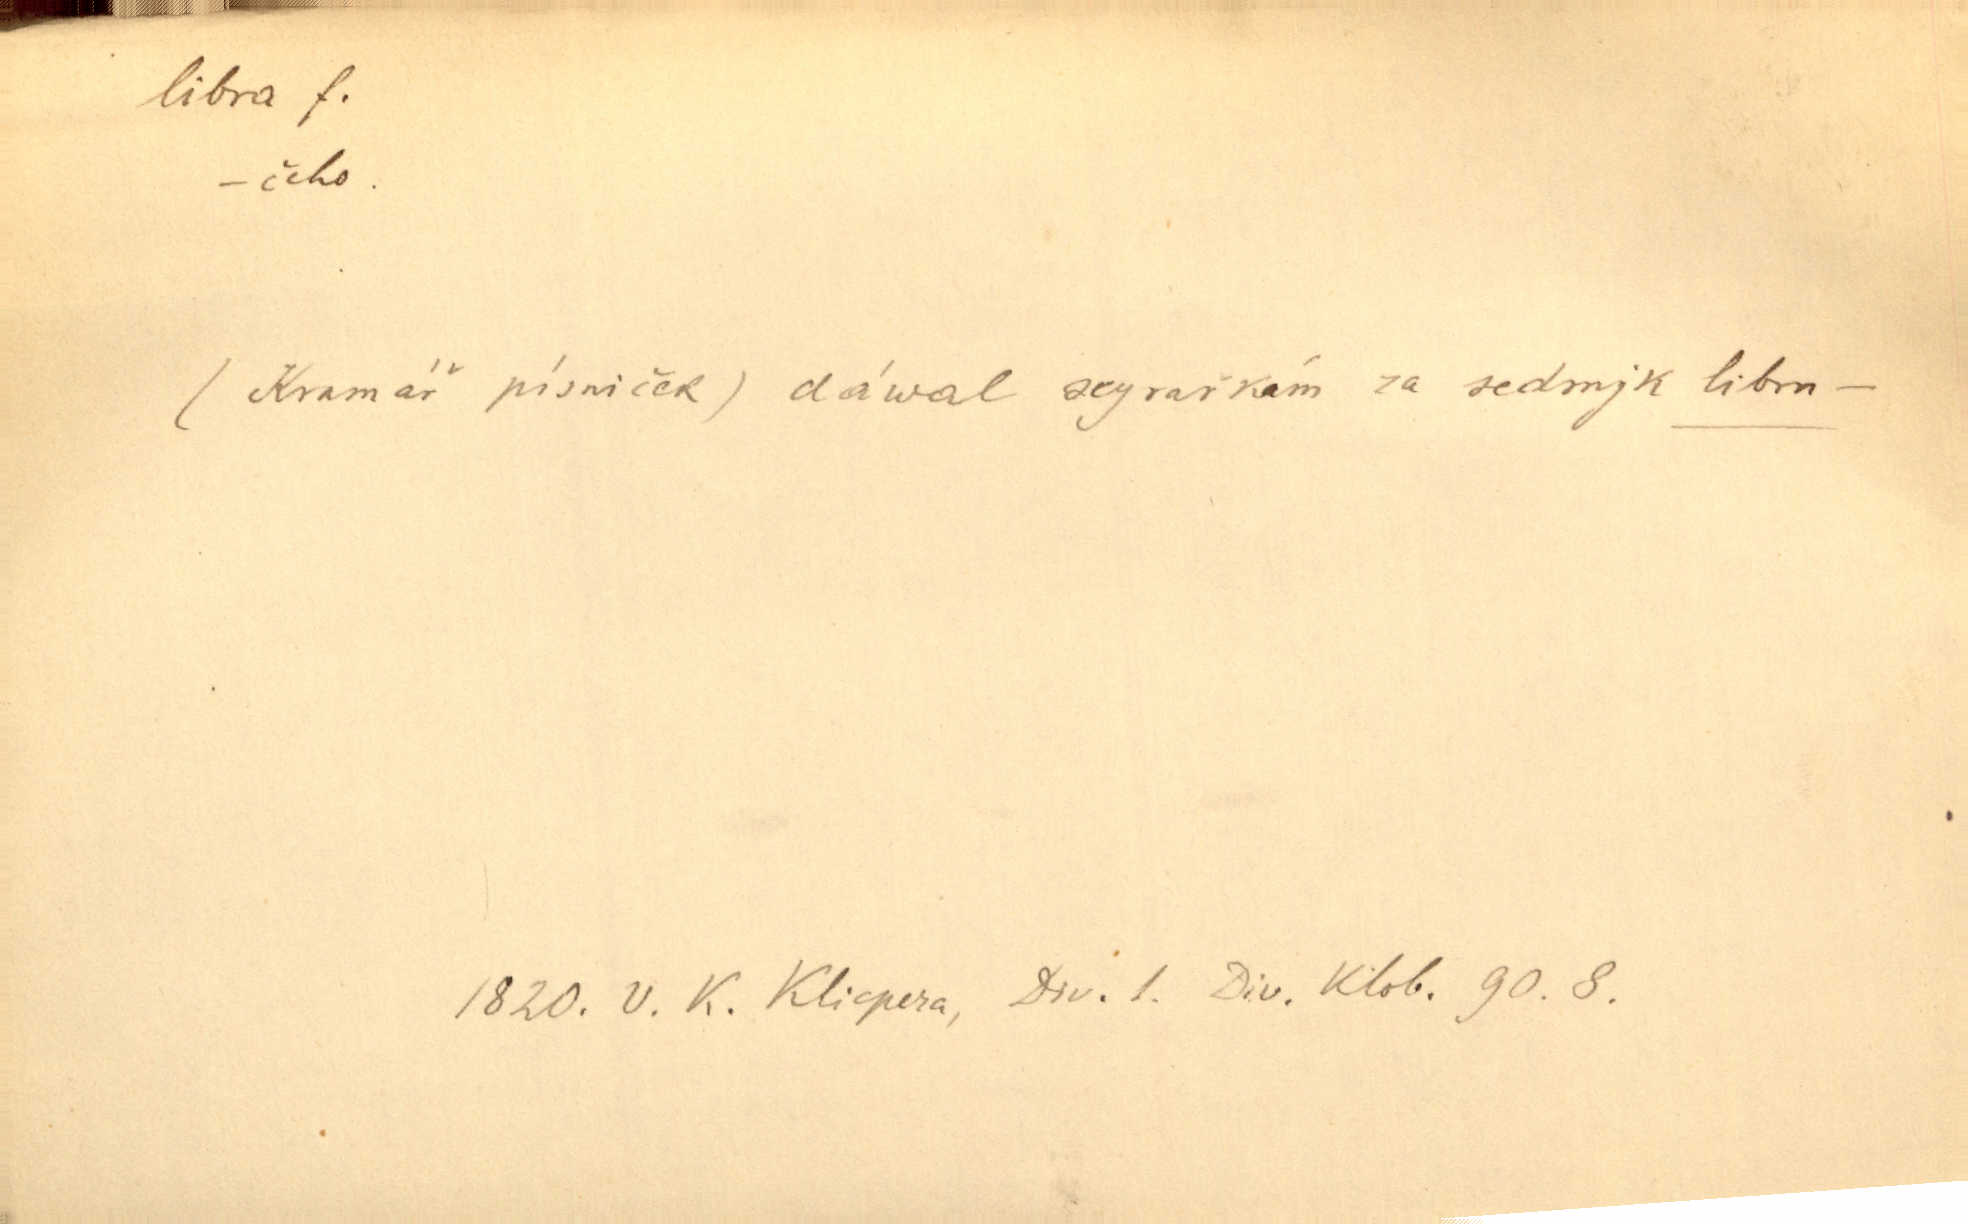 libra f.
– čeho.
( Kramář písniček ) dáwal seyrařkám za sedmjk libru –
1820. V. K. Klicpera, Div. 1. Div. Klob. 90. 8.